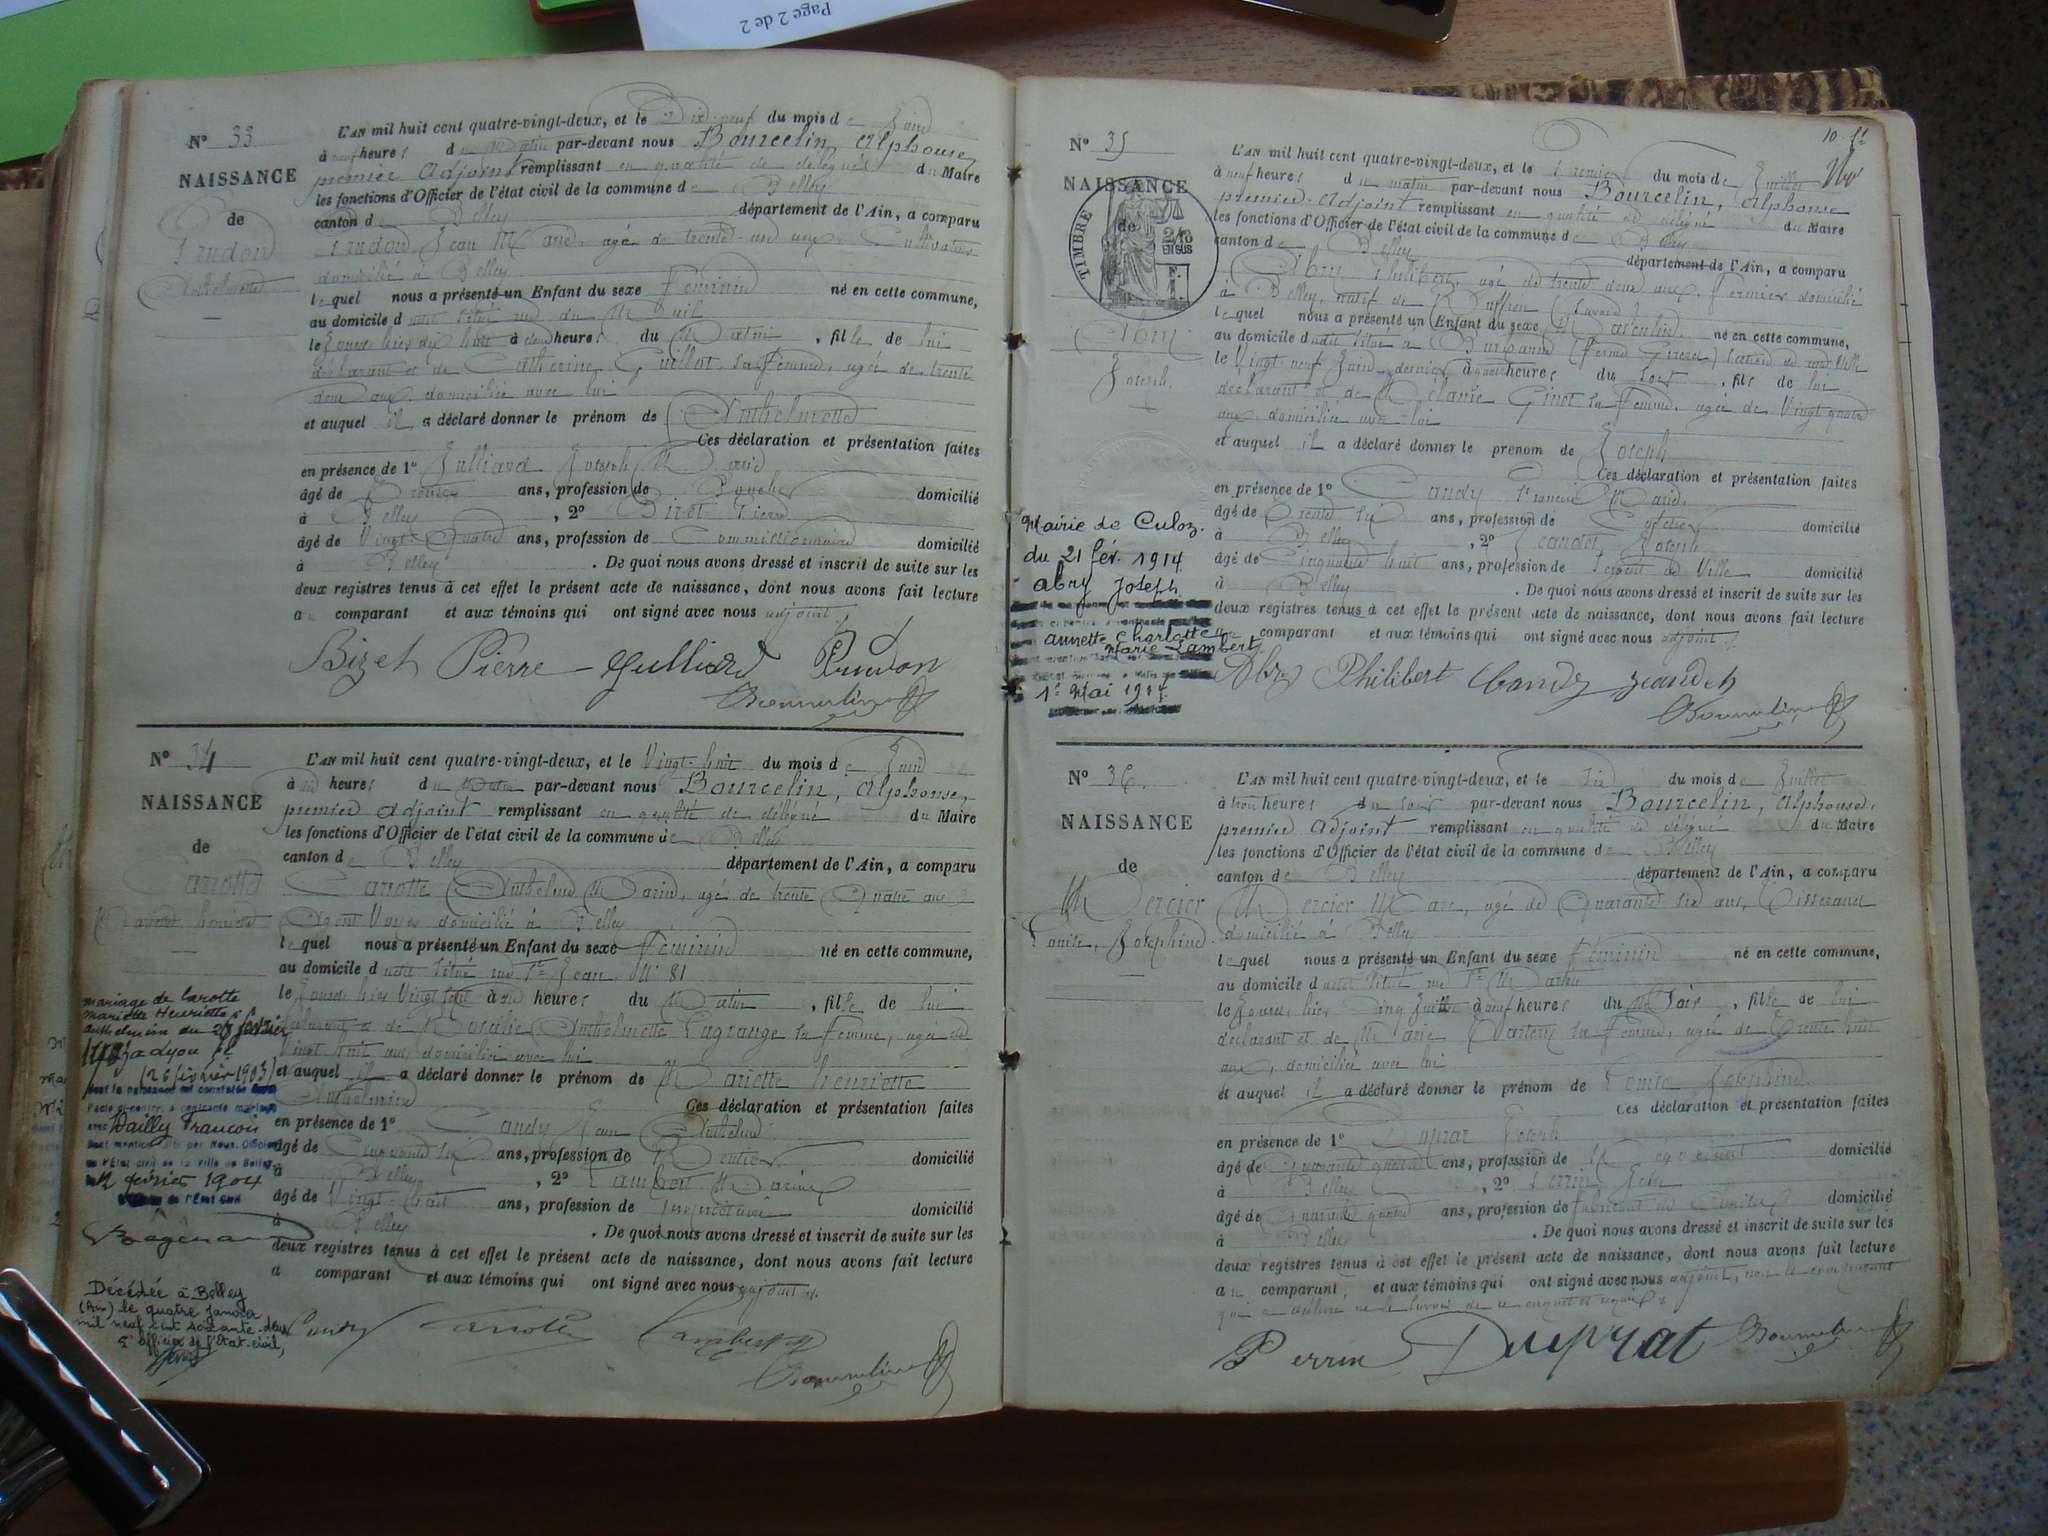 Page 2 de 2
N° 33
NAISSANCE
de
Prudon
Anthelmette
L'AN mil huit cent quatre-vingt-deux, et le Dix-neuf du mois de Juin
à neuf heures du Matin par-devant nous Bourcelin, Alphonse,
premier Adjoint remplissant en qualité de délégué du Maire
les fonctions d'Officier de l'état civil de la commune de Belley
canton de Belley département de l'Ain, a comparu
Prudon Jean Marie, âgé de trente-un ans, Cultivateur
domicilié à Belley
lequel nous a présenté un Enfant du sexe Féminin né en cette commune,
au domicile
le dix huit à heures du Matin, fille de lui
déclarant et de Catherine Guillot sa femme, âgée de trente
deux ans, domiciliée avec lui
et auquel il a déclaré donner le prénom de Anthelmette
Ces déclaration et présentation faites
en présence de 1° Julliard Joseph Marie
âgé de Trente ans, profession de Boucher domicilié
à Belley, 2° Bizet Pierre
âgé de Vingt-Quatre ans, profession de Commissionnaire domicilié
à Belley. De quoi nous avons dressé et inscrit de suite sur les
deux registres tenus à cet effet le présent acte de naissance, dont nous avons fait lecture
au comparant et aux témoins qui ont signé avec nous adjoint.
Bizet Pierre Julliard Prudon
Bourcelin
N° 34
NAISSANCE
de
Carotte
Mariette henriette
L'AN mil huit cent quatre-vingt-deux, et le Vingt-huit du mois de Juin
à dix heures du Matin par-devant nous Bourcelin, Alphonse,
premier Adjoint remplissant en qualité de délégué du Maire
les fonctions d'Officier de l'état civil de la commune de Belley
canton de Belley département de l'Ain, a comparu
Carotte Anthelme Marie, âgé de trente Quatre ans
Agent Voyer domicilié à Belley
lequel nous a présenté un Enfant du sexe Féminin né en cette commune,
au domicile d situé rue St Jean, N° 81
le Vingt Sept à heures du Matin, fille de lui
déclarant et de Anthelmette Lagrange sa femme, âgée de
vingt huit ans, domiciliée avec lui
et auquel il a déclaré donner le prénom de Mariette henriette
Anthelmine Ces déclaration et présentation faites
en présence de 1° Candy Jean Anthelme
âgé de Cinquante six ans, profession de Rentier domicilié
à Belley, 2° Lambert Marin
âgé de Vingt-huit ans, profession de propriétaire domicilié
à Belley. De quoi nous avons dressé et inscrit de suite sur les
deux registres tenus à cet effet le présent acte de naissance, dont nous avons fait lecture
au comparant et aux témoins qui ont signé avec nous adjoint.
mariage de Carotte
mariette Henriette
anthelmine du 26 février
1903 a Lyon
(26 février 1903)
dont la naissance est constatée
l'acte ci-contre, a contracté mariage
avec Dailly François
dont mention par Nous, Officier
de l'État civil de la Ville de Belley,
12 février 1904
de l'État Civil
Décédée à Belley
(Ain) le quatre janvier
mil neuf cent soixante-deux
L'officier de l'état-civil,
Candy Carotte Lambert
Bourcelin
10. ft
N° 35
NAISSANCE
de
TIMBRE
2/10
EN SUS
Abry
Joseph.
L'AN mil huit cent quatre-vingt-deux, et le Premier du mois de Juillet
à neuf heures du matin par-devant nous Bourcelin, Alphonse
premier Adjoint remplissant en qualité de délégué du Maire
les fonctions d'Officier de l'état civil de la commune de Belley
canton de Belley département de l'Ain, a comparu
Abry Philibert, âgé de trente deux ans, fermier domicilié
à Belley, natif de Ruffieu (Savoie)
lequel nous a présenté un Enfant du sexe Masculin né en cette commune,
au domicile d situé à
le Vingt neuf Juin dernier à heures du Soir, fils de lui
déclarant et de Mélanie Ginet sa femme, âgée de Vingt quatre
ans domiciliée avec lui
et auquel il a déclaré donner le prénom de Joseph
Ces déclaration et présentation faites
en présence de 1° Candy François Marie
âgé de Trente six ans, profession de domicilié
à Belley, 2° Jeandet Joseph
âgé de Cinquante huit ans, profession de Sergent de Ville domicilié
à Belley. De quoi nous avons dressé et inscrit de suite sur les
deux registres tenus à cet effet le présent acte de naissance, dont nous avons fait lecture
au comparant et aux témoins qui ont signé avec nous adjoint.
Mairie de Culoz.
du 21 fév. 1914
Abry Joseph
annette Charlotte
Marie Lambert
1er Mai 1914
Abry Philibert Candy Jeandet
Bourcelin
N° 36.
NAISSANCE
de
Mercier
Louise, Joséphine
L'AN mil huit cent quatre-vingt-deux, et le Six du mois de Juillet
à trois heures du soir par-devant nous Bourcelin, Alphonse,
premier Adjoint remplissant en qualité de délégué du Maire
les fonctions d'Officier de l'état civil de la commune de Belley
canton de Belley département de l'Ain, a comparu
Mercier Marc, âgé de Quarante six ans, Tisserand
domicilié à Belley
lequel nous a présenté un Enfant du sexe féminin né en cette commune,
au domicile d situé rue St Martin
le Jour d'hier, Cinq Juillet à neuf heures du Soir, fille de lui
déclarant et de Marie sa femme, âgée de Trente huit
ans, domiciliée avec lui
et auquel il a déclaré donner le prénom de Louise Joséphine
Ces déclaration et présentation faites
en présence de 1° Duprat Joseph
âgé de Quarante quatre ans, profession de domicilié
à Belley, 2° Perrin Jean
âgé de Quarante quatre ans, profession de fabricant de domicilié
à Belley. De quoi nous avons dressé et inscrit de suite sur les
deux registres tenus à cet effet le présent acte de naissance, dont nous avons fait lecture
au comparant, et aux témoins qui ont signé avec nous adjoint, non le comparant
qui a déclaré ne le savoir de ce enquis et requis
Perrin Duprat Bourcelin